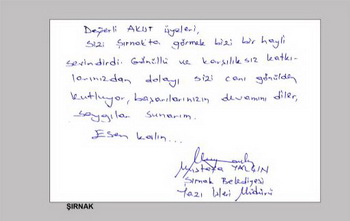 Değerli Akist üyeleri,
Sizi Şırnak'ta görmek bizi bir hayli
sevindirdi. Gönüllü ve karşılıksız katkı-
larınızdan dolayı sizi canı gönülden
kutluyor, başarılarınızın devamını diler,
saygılar sunarım.
Esen kalın...
Mustafa YALÇIN
Şırnak Belediyesi
Yazı İşleri Müdürü
ŞIRNAK